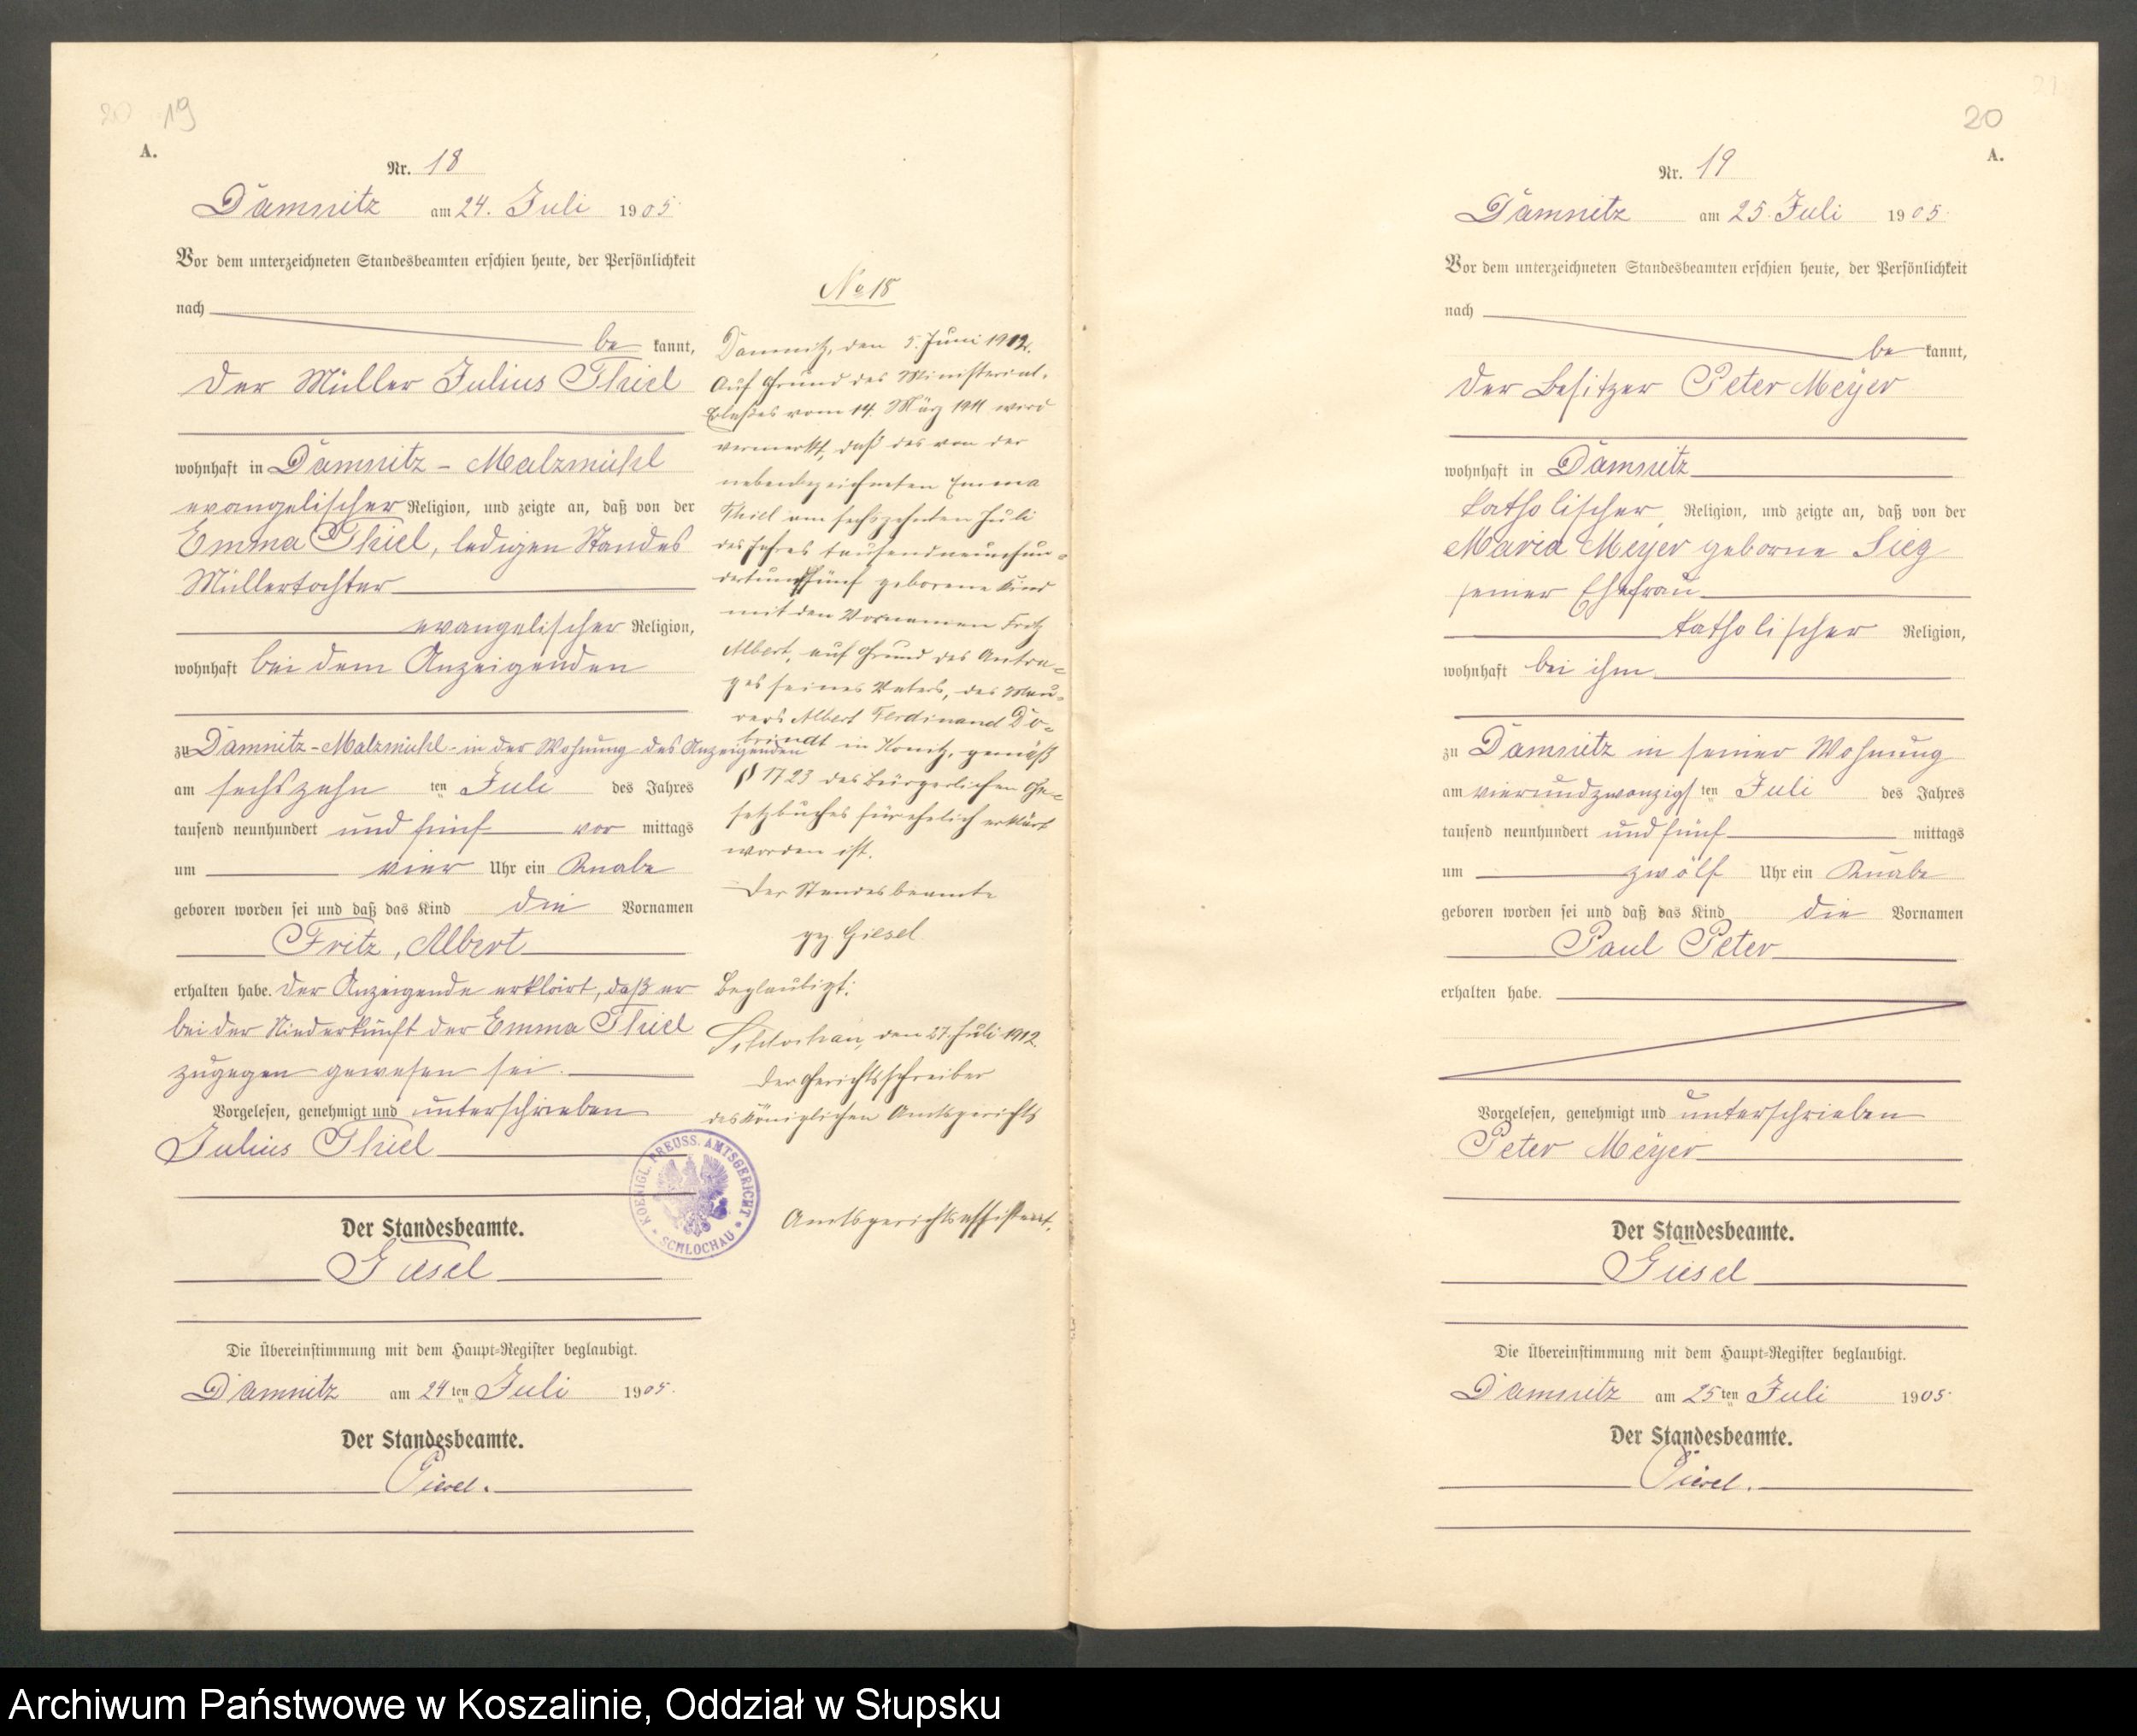 20 19
A.
Nr. 18
Damnitz am 24. Juli 1905.
Vor dem unterzeichneten Standesbeamten erschien heute, der Persönlichkeit
nach
be kannt,
der Müller Julius Thiel
wohnhaft in Damnitz - Malzmühl
evangelischer Religion, und zeigte an, daß von der
Emma Thiel, ledigen Standes
Müllertochter
evangelischer Religion,
wohnhaft bei dem Anzeigenden
zu Damnitz-Malzmühl in der Wohnung des Anzeigenden
am sechszehn ten Juli des Jahres
tausend neunhundert und fünf vor mittags
um vier Uhr ein Knabe
geboren worden sei und daß das Kind die Vornamen
Fritz, Albert
erhalten habe. Der Anzeigende erklärt, daß er
bei der Niederkunft der Emma Thiel
zugegen gewesen sei.
Vorgelesen, genehmigt und unterschrieben
Julius Thiel
Der Standesbeamte.
Giesel
Die Übereinstimmung mit dem Haupt-Register beglaubigt.
Damnitz am 24 ten Juli 1905.
Der Standesbeamte.
Giesel.
No 18
Damnitz, den 5. Juni 1912.
Auf Grund des Ministerial-
Erlaßes vom 14. März 1911 wird
vermerkt, daß das von der
nebenbezeichneten Emma
Thiel am sechszehnten Juli
des Jahres tausendneunhun-
dertundfünf geborene Kind
mit den Vornamen Fritz
Albert, auf Grund des Antra-
ges seines Vaters, des Mau-
rers Albert Ferdinand Do-
brindt in Konitz, gemäß
§ 1723 des Bürgerlichen Ge-
setzbuches für ehelich erklärt
worden ist.
Der Standesbeamte
gez. Giesel
Beglaubigt:
Schlochau, den 27. Juli 1912.
Der Gerichtsschreiber
des Königlichen Amtsgerichts
KOENIGL. PREUSS. AMTSGERICHT
SCHLOCHAU
Amtsgerichtsassistent.
21
20
A.
Nr. 19
Damnitz am 25. Juli 1905.
Vor dem unterzeichneten Standesbeamten erschien heute, der Persönlichkeit
nach
be kannt,
der Besitzer Peter Meyer
wohnhaft in Damnitz
katholischer Religion, und zeigte an, daß von der
Maria Meyer geborne Sieg
seiner Ehefrau
katholischer Religion,
wohnhaft bei ihm
zu Damnitz in seiner Wohnung
am vierundzwanzigs ten Juli des Jahres
tausend neunhundert und fünf mittags
um zwölf Uhr ein Knabe
geboren worden sei und daß das Kind die Vornamen
Paul Peter
erhalten habe.
Vorgelesen, genehmigt und unterschrieben
Peter Meyer
Der Standesbeamte.
Giesel
Die Übereinstimmung mit dem Haupt-Register beglaubigt.
Damnitz am 25 ten Juli 1905.
Der Standesbeamte.
Giesel.
Archiwum Państwowe w Koszalinie, Oddział w Słupsku